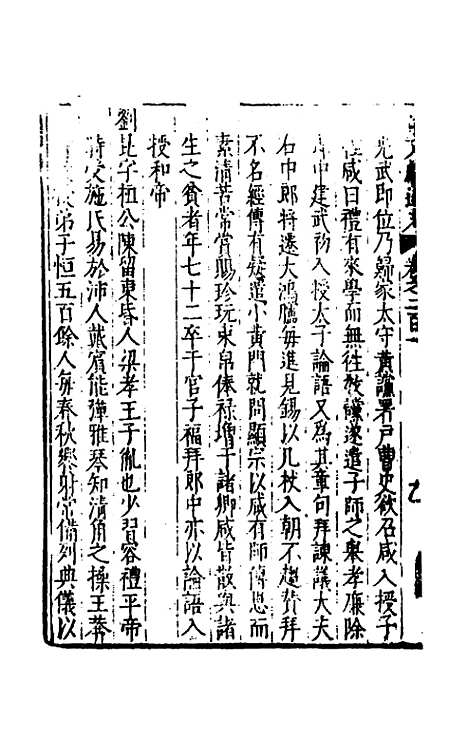 光武即位乃歸家太守黃讜署戶曹史欲召咸入授子
咸曰禮有來學而無往教讜遂遣子師之舉孝廉除
中建武初入授太子論語又為其章句拜諫議大夫
右中郎將遷大鴻臚每進見錫以几杖入朝不趨贊拜
不名經傳有疑遣小黃門就問顯宗以咸有師傅恩而
素清苦常賞賜珍玩束帛俸祿增于諸卿咸皆散與諸
生之貧者年七十二卒于官子福拜郎中亦以論語入
授和帝
劉昆字桓公陳留東昏人梁孝王子胤也少習容禮平帝
時受施氏易於沛人戴賓能彈雅琴知清角之操王莽
弟子恒五百餘人每春秋鄉射常備列典儀以
卷之二百一
九